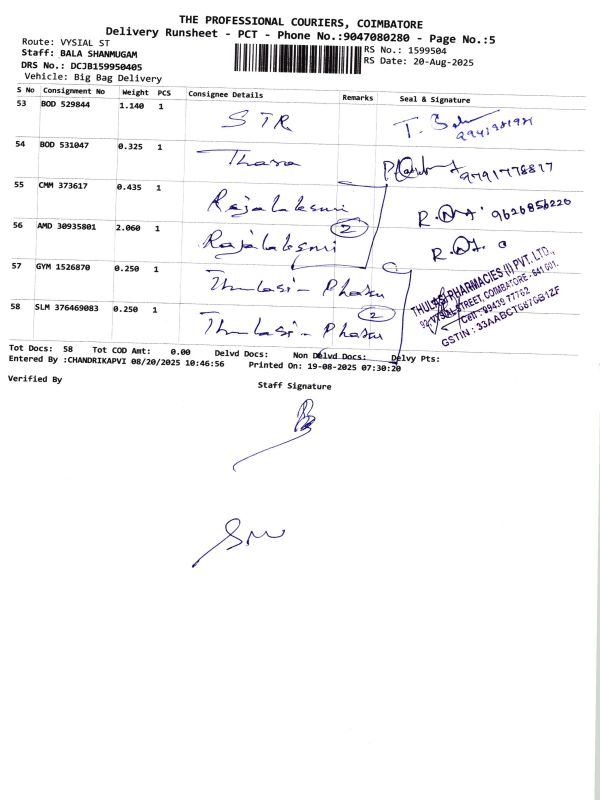 THE PROFESSIONAL COURIERS, COIMBATORE
Delivery Runsheet - PCT - Phone No.:9047080280 - Page No.:5
Route: VYSIAL ST
Staff: BALA SHANMUGAM
DRS No.: DCJB159950405
Vehicle: Big Bag Delivery
RS No.: 1599504
RS Date: 20-Aug-2025
S No Consignment No Weight PCS Consignee Details Remarks Seal & Signature
53 BOD 529844 1.140 1 STR
54 BOD 531047 0.325 1 Thara 9791778817
55 CMM 373617 0.435 1 Rajalaksmi 9626856220
56 AMD 30935801 2.060 1 Rajalaksmi 2
57 GYM 1526870 0.250 1 Thulasi - Phasu
58 SLM 376469083 0.250 1 Thulasi - Phasu 2
THULASI PHARMACIES (I) PVT. LTD.,
92, VYSIAL STREET, COIMBATORE - 641 001.
Cell : 99439 77762
Tot Docs: 58 Tot COD Amt: 0.00 Delvd Docs: Non Delvd Docs: Delvy Pts:
Entered By :CHANDRIKAPVI 08/20/2025 10:46:56 Printed On: 19-08-2025 07:30:20
Verified By
Staff Signature